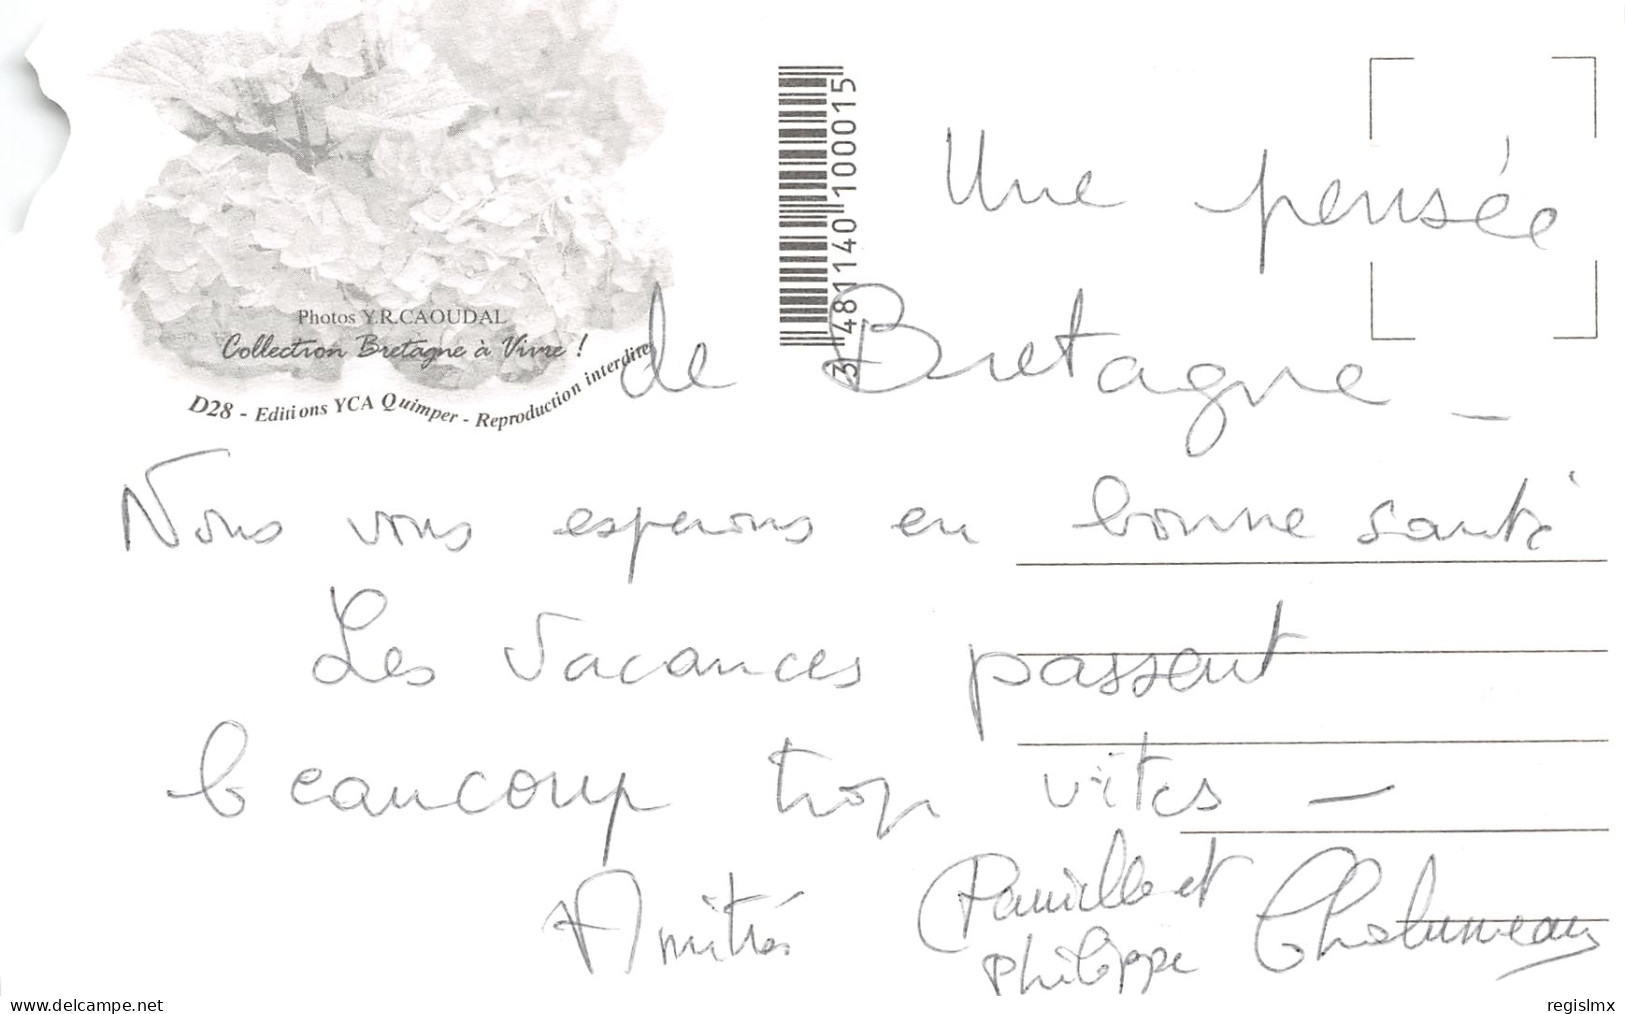 Photos Y.R.CAOUDAL
Collection Bretagne à Vivre !
D28 - Editions YCA Quimper - Reproduction interdite
3 481140 100015
Une pensée
de Bretagne -
Nous vous esperons en bonne santé
Les vacances passent
beaucoup trop vites -
Amitiés
et
Philippe
www.delcampe.net
regislmx